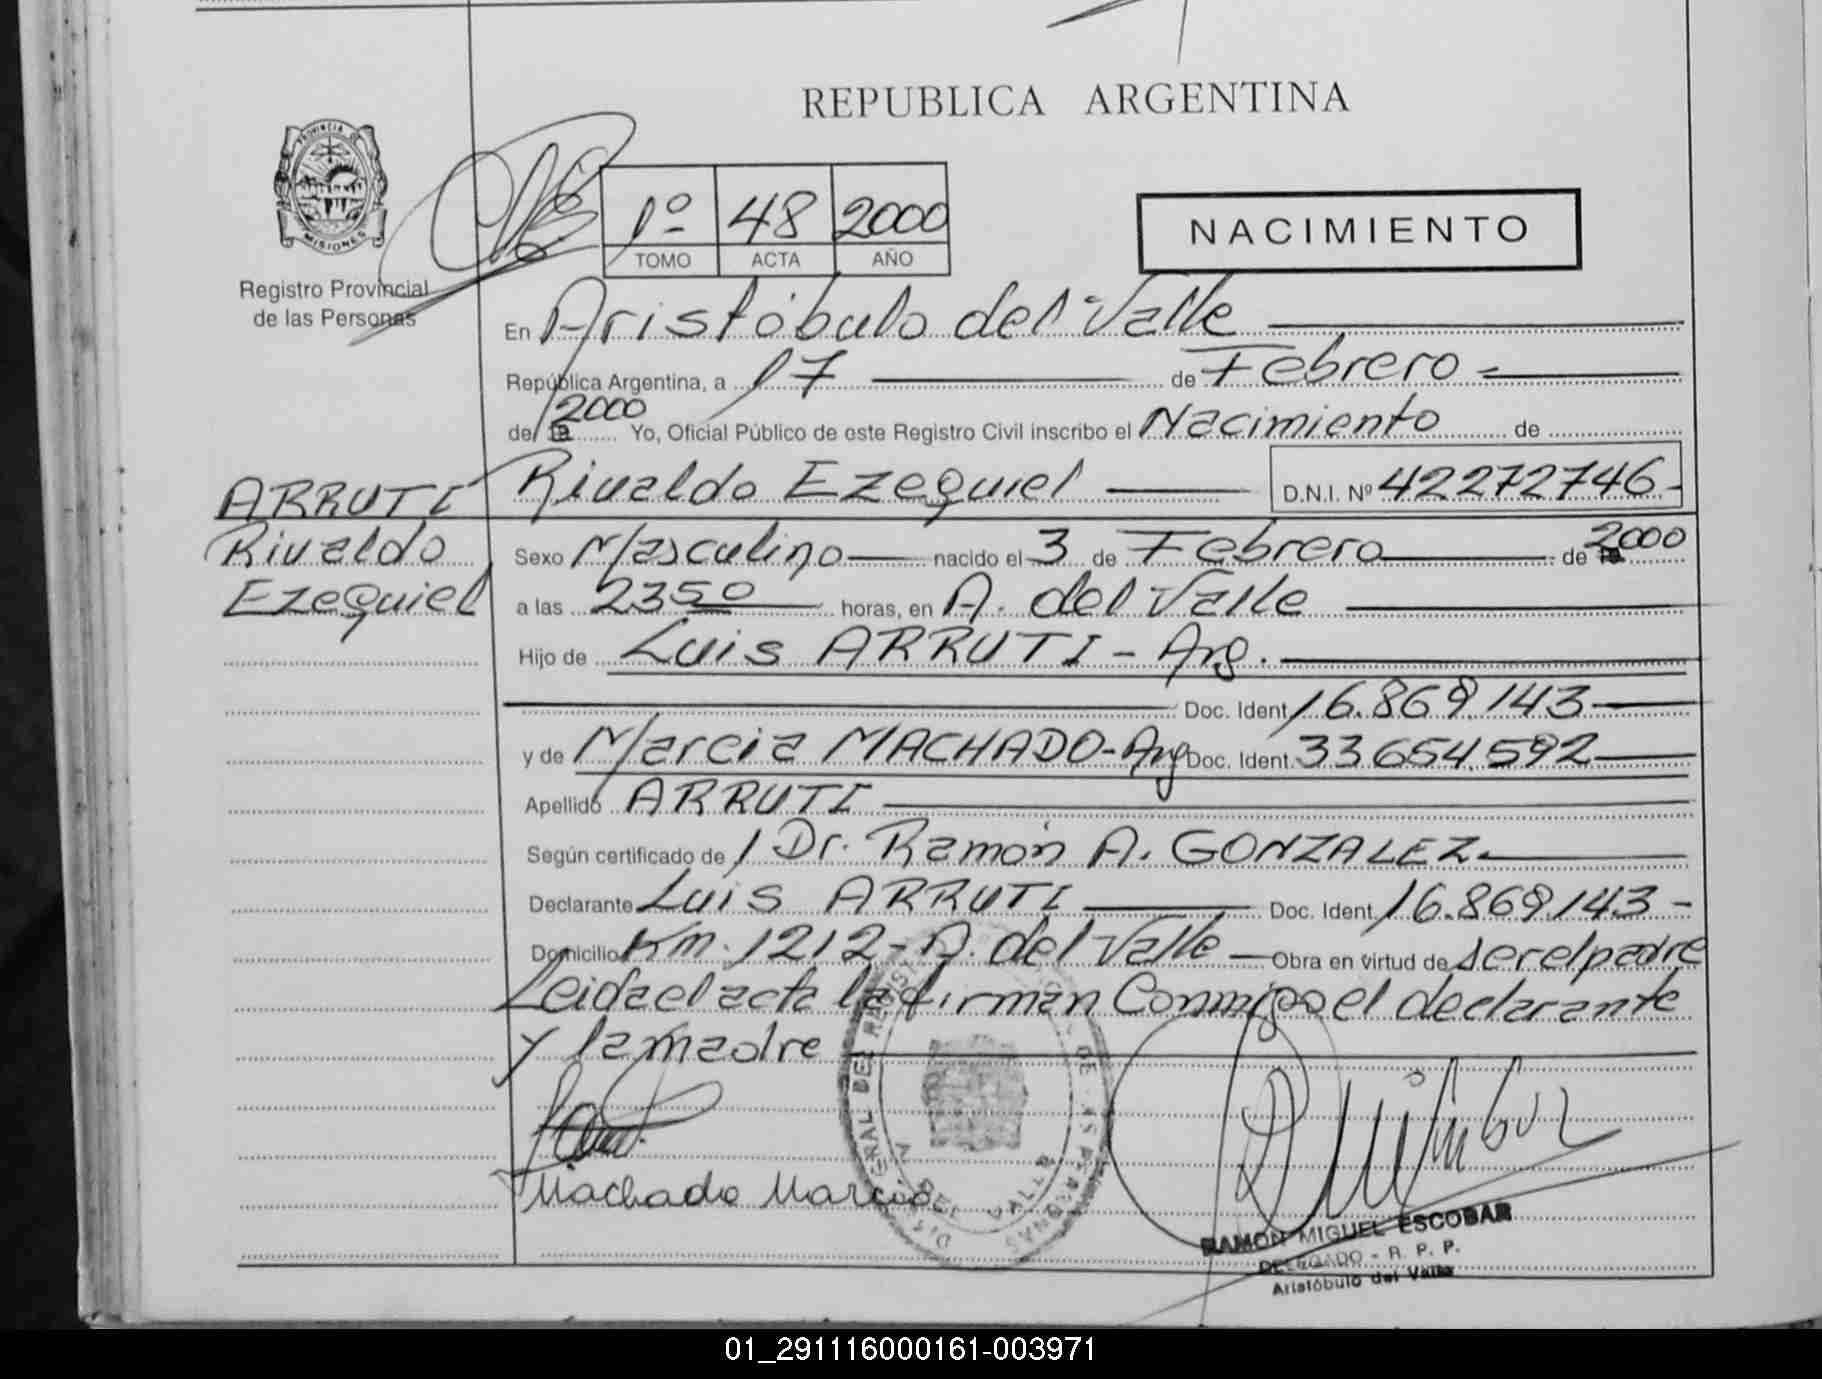 REPUBLICA ARGENTINA
PROVINCIA DE
MISIONES
Registro Provincial
de las Personas
1º 48 2000
TOMO ACTA AÑO
NACIMIENTO
En Aristóbulo del Valle
República Argentina, a 17 de Febrero
de 2000 Yo, Oficial Público de este Registro Civil inscribo el Nacimiento de
Rivaldo Ezequiel D.N.I. Nº 42272746-
ARRUTI
Rivaldo
Ezequiel
Sexo Masculino nacido el 3 de Febrero de 2000
a las 2350 horas, en A. del Valle
Hijo de Luis ARRUTI - Arg.
Doc. Ident 16.869.143
y de Marcia MACHADO-Arg Doc. Ident. 33654.592
Apellido ARRUTI
Según certificado de / Dr. Ramón A. GONZALEZ
Declarante Luis ARRUTI Doc. Ident. 16.869.143-
Domicilio Km. 1212- A. del Valle - Obra en virtud de ser el padre
Leida el acta la firman Conmigo el declarante
y la madre
Machado Marcia
RAMON MIGUEL ESCOBAR
DELEGADO - R. P. P.
Aristóbulo del Valle
01_291116000161-003971